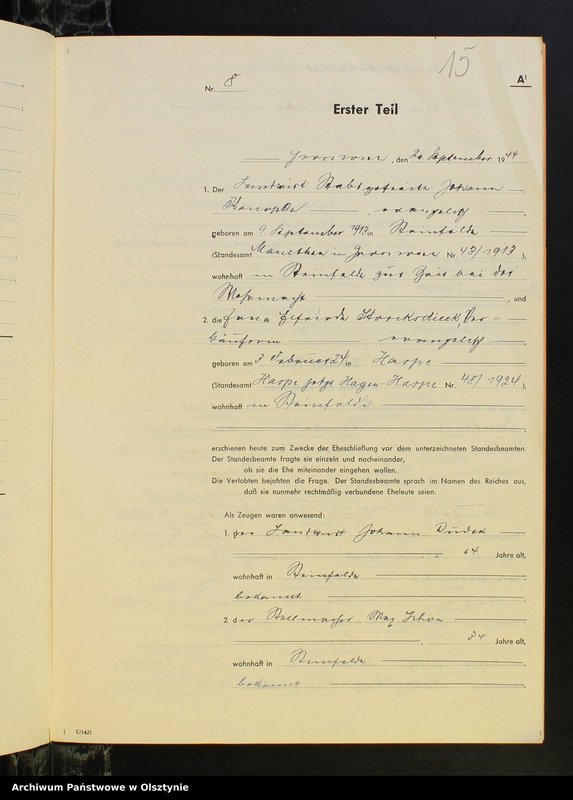 15
A¹
Nr. 8
Erster Teil
, den 20 September 1944
1. Der Landwirt Johann
Konopka evangelisch
geboren am 9 September 1913 in Steinfelde
(Standesamt in Nr. 43/1913 ),
wohnhaft in Steinfelde zur Zeit bei der
Wehrmacht , und
2. die Elfriede Storksdieck, Ver-
käuferin evangelisch
geboren am 3 Februar 24 in Haspe
(Standesamt Haspe jetzt Hagen-Haspe Nr. 48/1924 ),
wohnhaft in Steinfelde
erschienen heute zum Zwecke der Eheschließung vor dem unterzeichneten Standesbeamten.
Der Standesbeamte fragte sie einzeln und nacheinander,
ob sie die Ehe miteinander eingehen wollen.
Die Verlobten bejahten die Frage. Der Standesbeamte sprach im Namen des Reiches aus,
daß sie nunmehr rechtmäßig verbundene Eheleute seien.
Als Zeugen waren anwesend:
1. der Landwirt Johann Dudek
, 64 Jahre alt,
wohnhaft in Steinfelde
bekannt
2. der Stellmacher Max
, 34 Jahre alt,
wohnhaft in Steinfelde
bekannt
C/1421
Archiwum Państwowe w Olsztynie